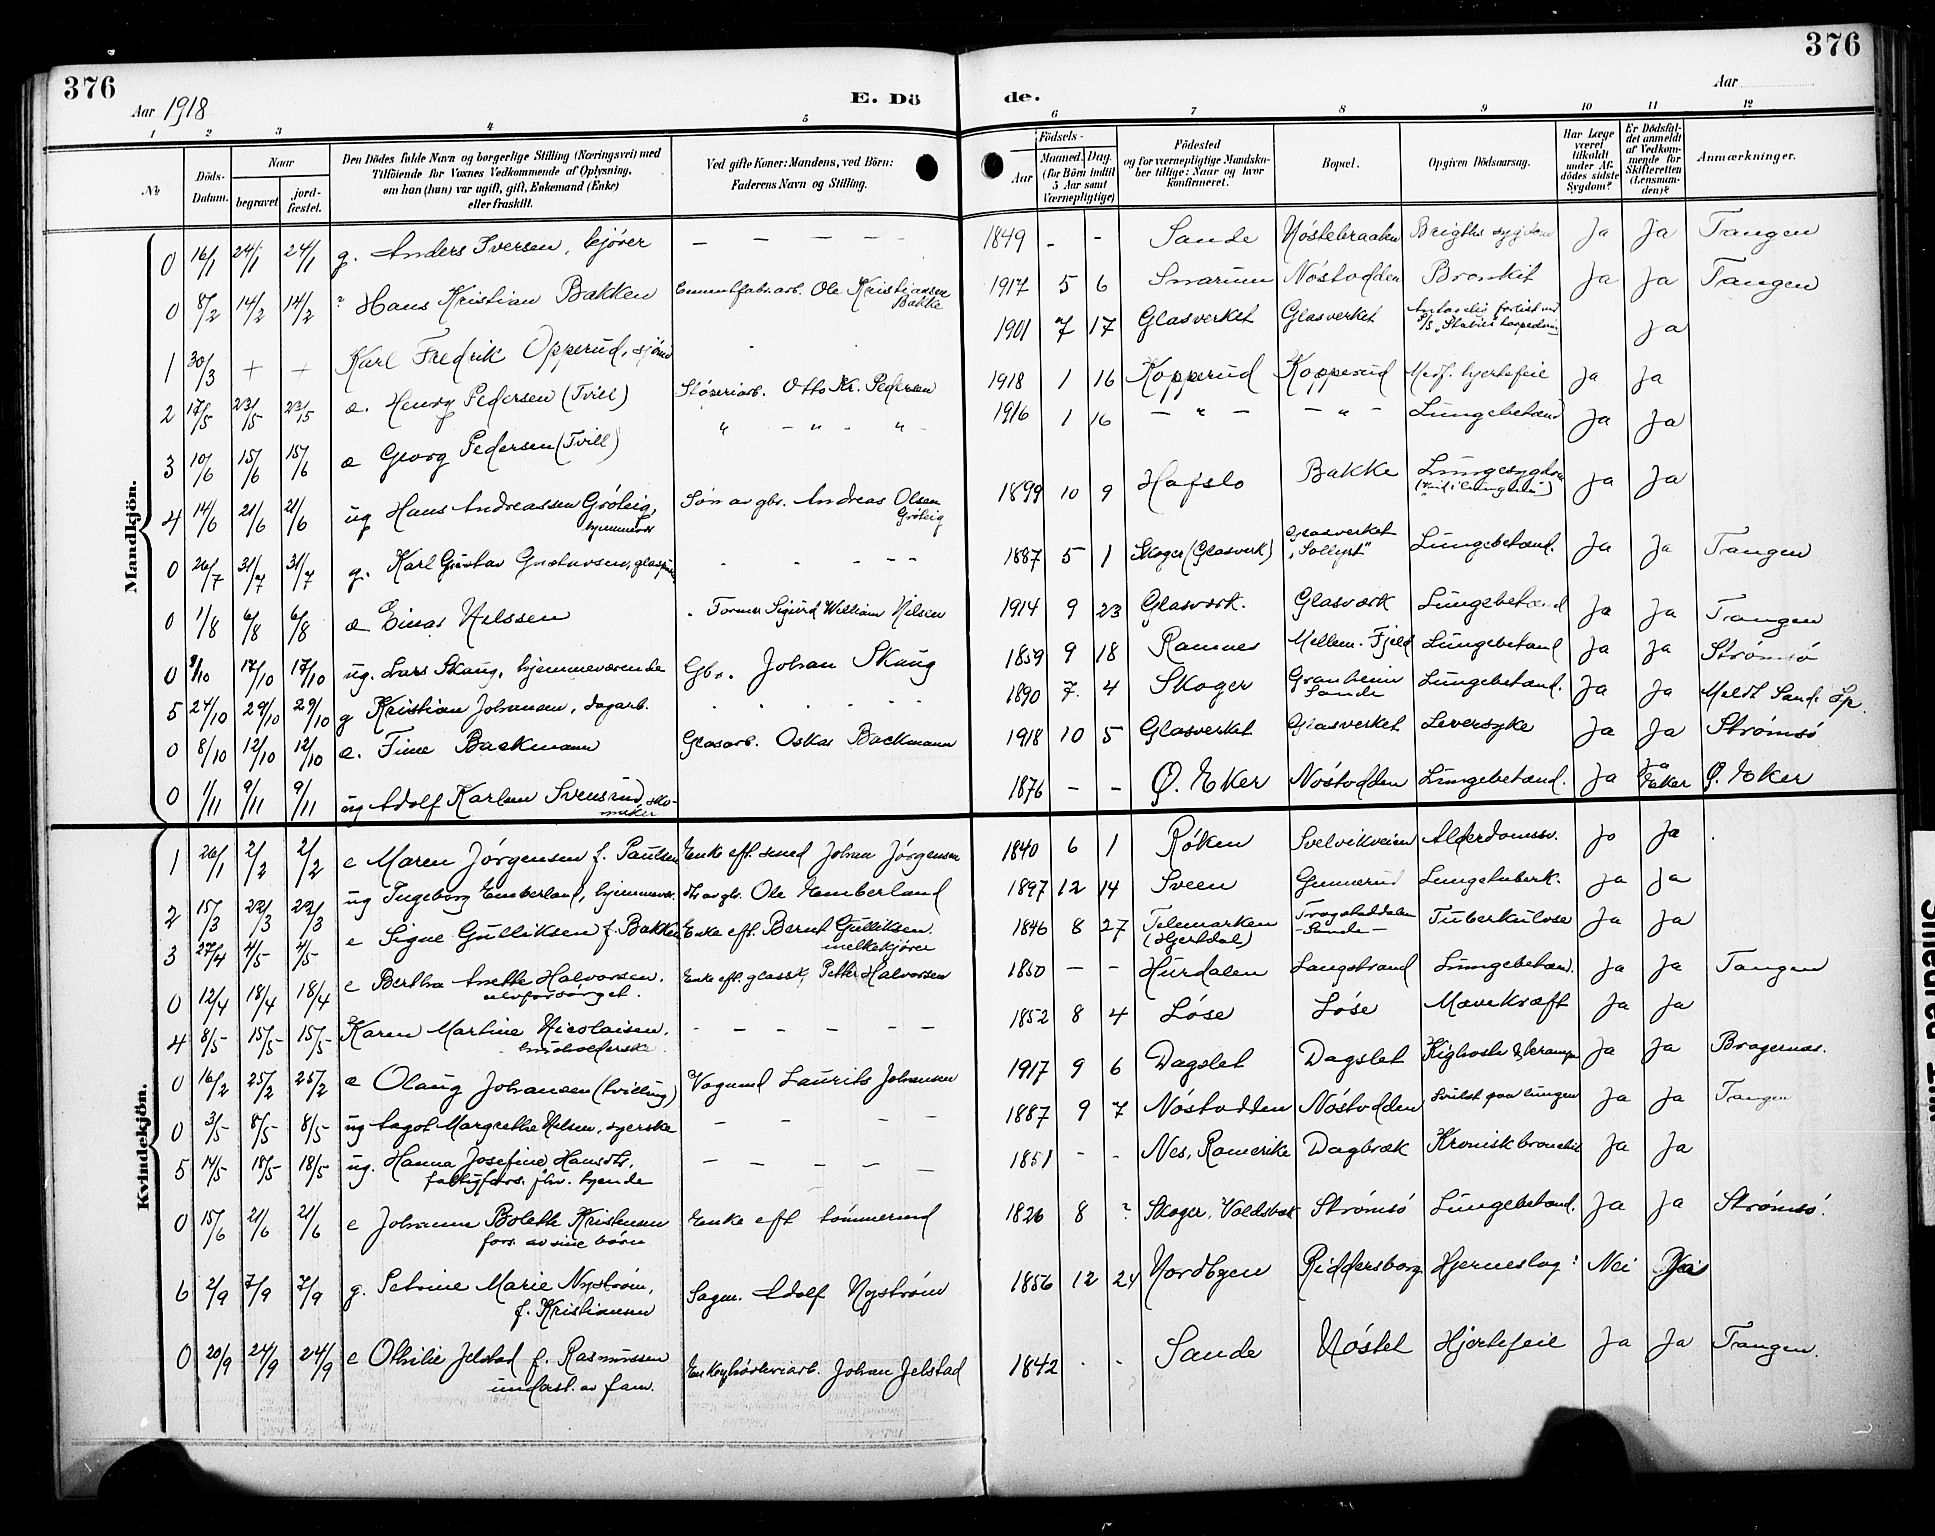 376
376
Aar 1918
E. Dö de.
Aar
1 2 3 4 5 6 7 8 9 10 11 12
No
Döds-Datum.
Naar
begravet
jord-fæstet.
Den Dödes fulde Navn og borgerlige Stilling (Næringsvei) med
Tilföiende for Voxnes Vedkommende af Oplysning,
om han (hun) var ugift, gift, Enkemand (Enke)
eller fraskilt.
Ved gifte Koner: Mandens, ved Börn:
Faderens Navn og Stilling.
Födsels-
Aar
Maaned. Dag.
(for Börn indtil
5 Aar samt
Værnepligtige)
Födested
og for værnepligtige Mandska-
ber tillige: Naar og hvor
konfirmeret.
Bopæl.
Opgiven Dödsaarsag.
Har Læge
været
tilkaldt
under Af-
dödes sidste
Sygdom?
Er Dödsfal-
det anmeldt
af Vedkom-
mende for
Skifteretten
(Lensman-
den)?
Anmærkninger.
Mandkjön.
0 16/1 24/1 24/1 g. Anders Iversen, kjører — — — — — 1849 - - Sande Nøstebraaten Brigths sygdom Ja Ja Tangen
0 8/2 14/2 14/2 Hans Kristian Bakken Cementfabr.arb. Ole Kristiansen Bakke 1917 5 6 Snarum Nøstodden Bronkit Ja Ja Tangen
1 30/3 + + Karl Fredrik Opperud, sjømd 1901 7 17 Glasverket Glasverket Antagelig forlist ved Ja
2 17/5 23/5 23/5 æ. Henry Pedersen (Tvill) Støperiarb. Otto Kr. Pedersen 1918 1 16 Kopperud Kopperud Medf. hjertefeil Ja Ja
3 10/6 15/6 15/6 æ Georg Pedersen (Tvill) " — " - " - 1916 1 16 — " — — " — Lungebetænd Ja Ja
4 14/6 21/6 21/6 ug Hans Andreassen Grøteig, hjemmevær Søn av gbr. Andreas Olsen Grøteig 1899 10 9 Hafslo Bakke Lungesygdom Ja Ja
0 26/7 31/7 31/7 g. Karl Gustav Gustavsen, 1887 5 1 Skoger (Glasverk) Glasverket "Sollyst" Lungebetænd. Ja Ja Tangen
0 1/8 6/8 6/8 æ Einar Nilssen Former Sigurd William Nilsen 1914 9 23 Glasværk. Glasværk Lungebetænd Ja Ja Tangen
0 9/10 17/10 17/10 ug. Lars Skaug, hjemmeværende Gbr. Johan Skaug 1859 9 18 Ramnes Mellem-Fjeld Lungebetænd Ja Ja Strømsø
5 24/10 29/10 29/10 g Kristian Johansen, dagarb. 1890 7 4 Skoger Granheim Sande Lungebetænd. Ja Ja Meldt Sande Sp.
0 8/10 12/10 12/10 æ. Fine Backmann Glasarb. Oskar Backmann 1918 10 5 Glasverket Glasverket Leversyke Ja Ja Strømsø
0 1/11 9/11 9/11 ug Adolf Karlsen Svensrud sko-maker 1876 - - Ø. Eker Nøstodden Lungebetænd. Ja Ø. Eker
Kvindekjön.
1 26/1 2/2 2/2 e Maren Jørgensen f. Paulsen Enke eft. smed Johan Jørgensen 1840 6 1 Røken Svelvikveien Alderdomssv. Ja Ja
2 15/3 22/3 22/3 ug Ingeborg Emberland, hjemmevær. Dtr av gbr. Ole Emberland 1897 12 14 Sveen Gunnerud Lungetuberk. Ja Ja
3 27/4 4/5 4/5 e Signe Gulliksen f. Bakken Enke eft. Bernt Gulliksen. melkekjører 1846 8 27 Telemarken (Hjertdal) Sande Tuberkulose Ja Ja
0 12/4 18/4 18/4 e Bertha Anette Halvorsen. selvforsørget. Enke eft. glassk. Petter Halvorsen 1850 - - Hurdalen Langstrand Lungebetænd. Ja Ja Tangen
4 8/5 15/5 15/5 Karen Martine Nicolaisen. husholderske — — — — — 1852 8 4 Løse Løse Mavekræft Ja Ja
0 16/2 25/2 25/2 æ Olaug Johansen (tvilling) Vognmd Laurits Johansen 1917 9 6 Dagslet Dagslet Kighoste & krampe Ja Ja Bragernæs.
0 3/5 8/5 8/5 ug Aagot Margrethe Nilsen, syerske — — — 1887 9 7 Nøstodden Nøstodden Svulst paa lungen Ja Ja Tangen
5 14/5 18/5 18/5 ug. Hanna Josefine Hansdtr. fattigfors. fhv. tjende — — — — — 1851 - - Nes, Romerike Dagbræk Kronisk bronchit Ja Ja
0 15/6 21/6 21/6 e Johanne Bolette Kristensen fors. av sine børn Enke eft tømmermd 1826 8 ? Skoger, Strømsø Lungebetænd. Ja Ja Strømsø.
6 2/9 7/9 7/9 g. Petrine Marie Nystrøm, f. Kristiansen Sagm. Adolf Nystrøm 1856 12 24 Nordbyen Riddersborg Hjerneslag Nei Nei
0 20/9 24/9 24/9 e Othilie Jelstad f. Rasmussen underst. av fam. Enke Johan Jelstad 1842 - - Sande Nøstet Hjertefeil Ja Ja Tangen.